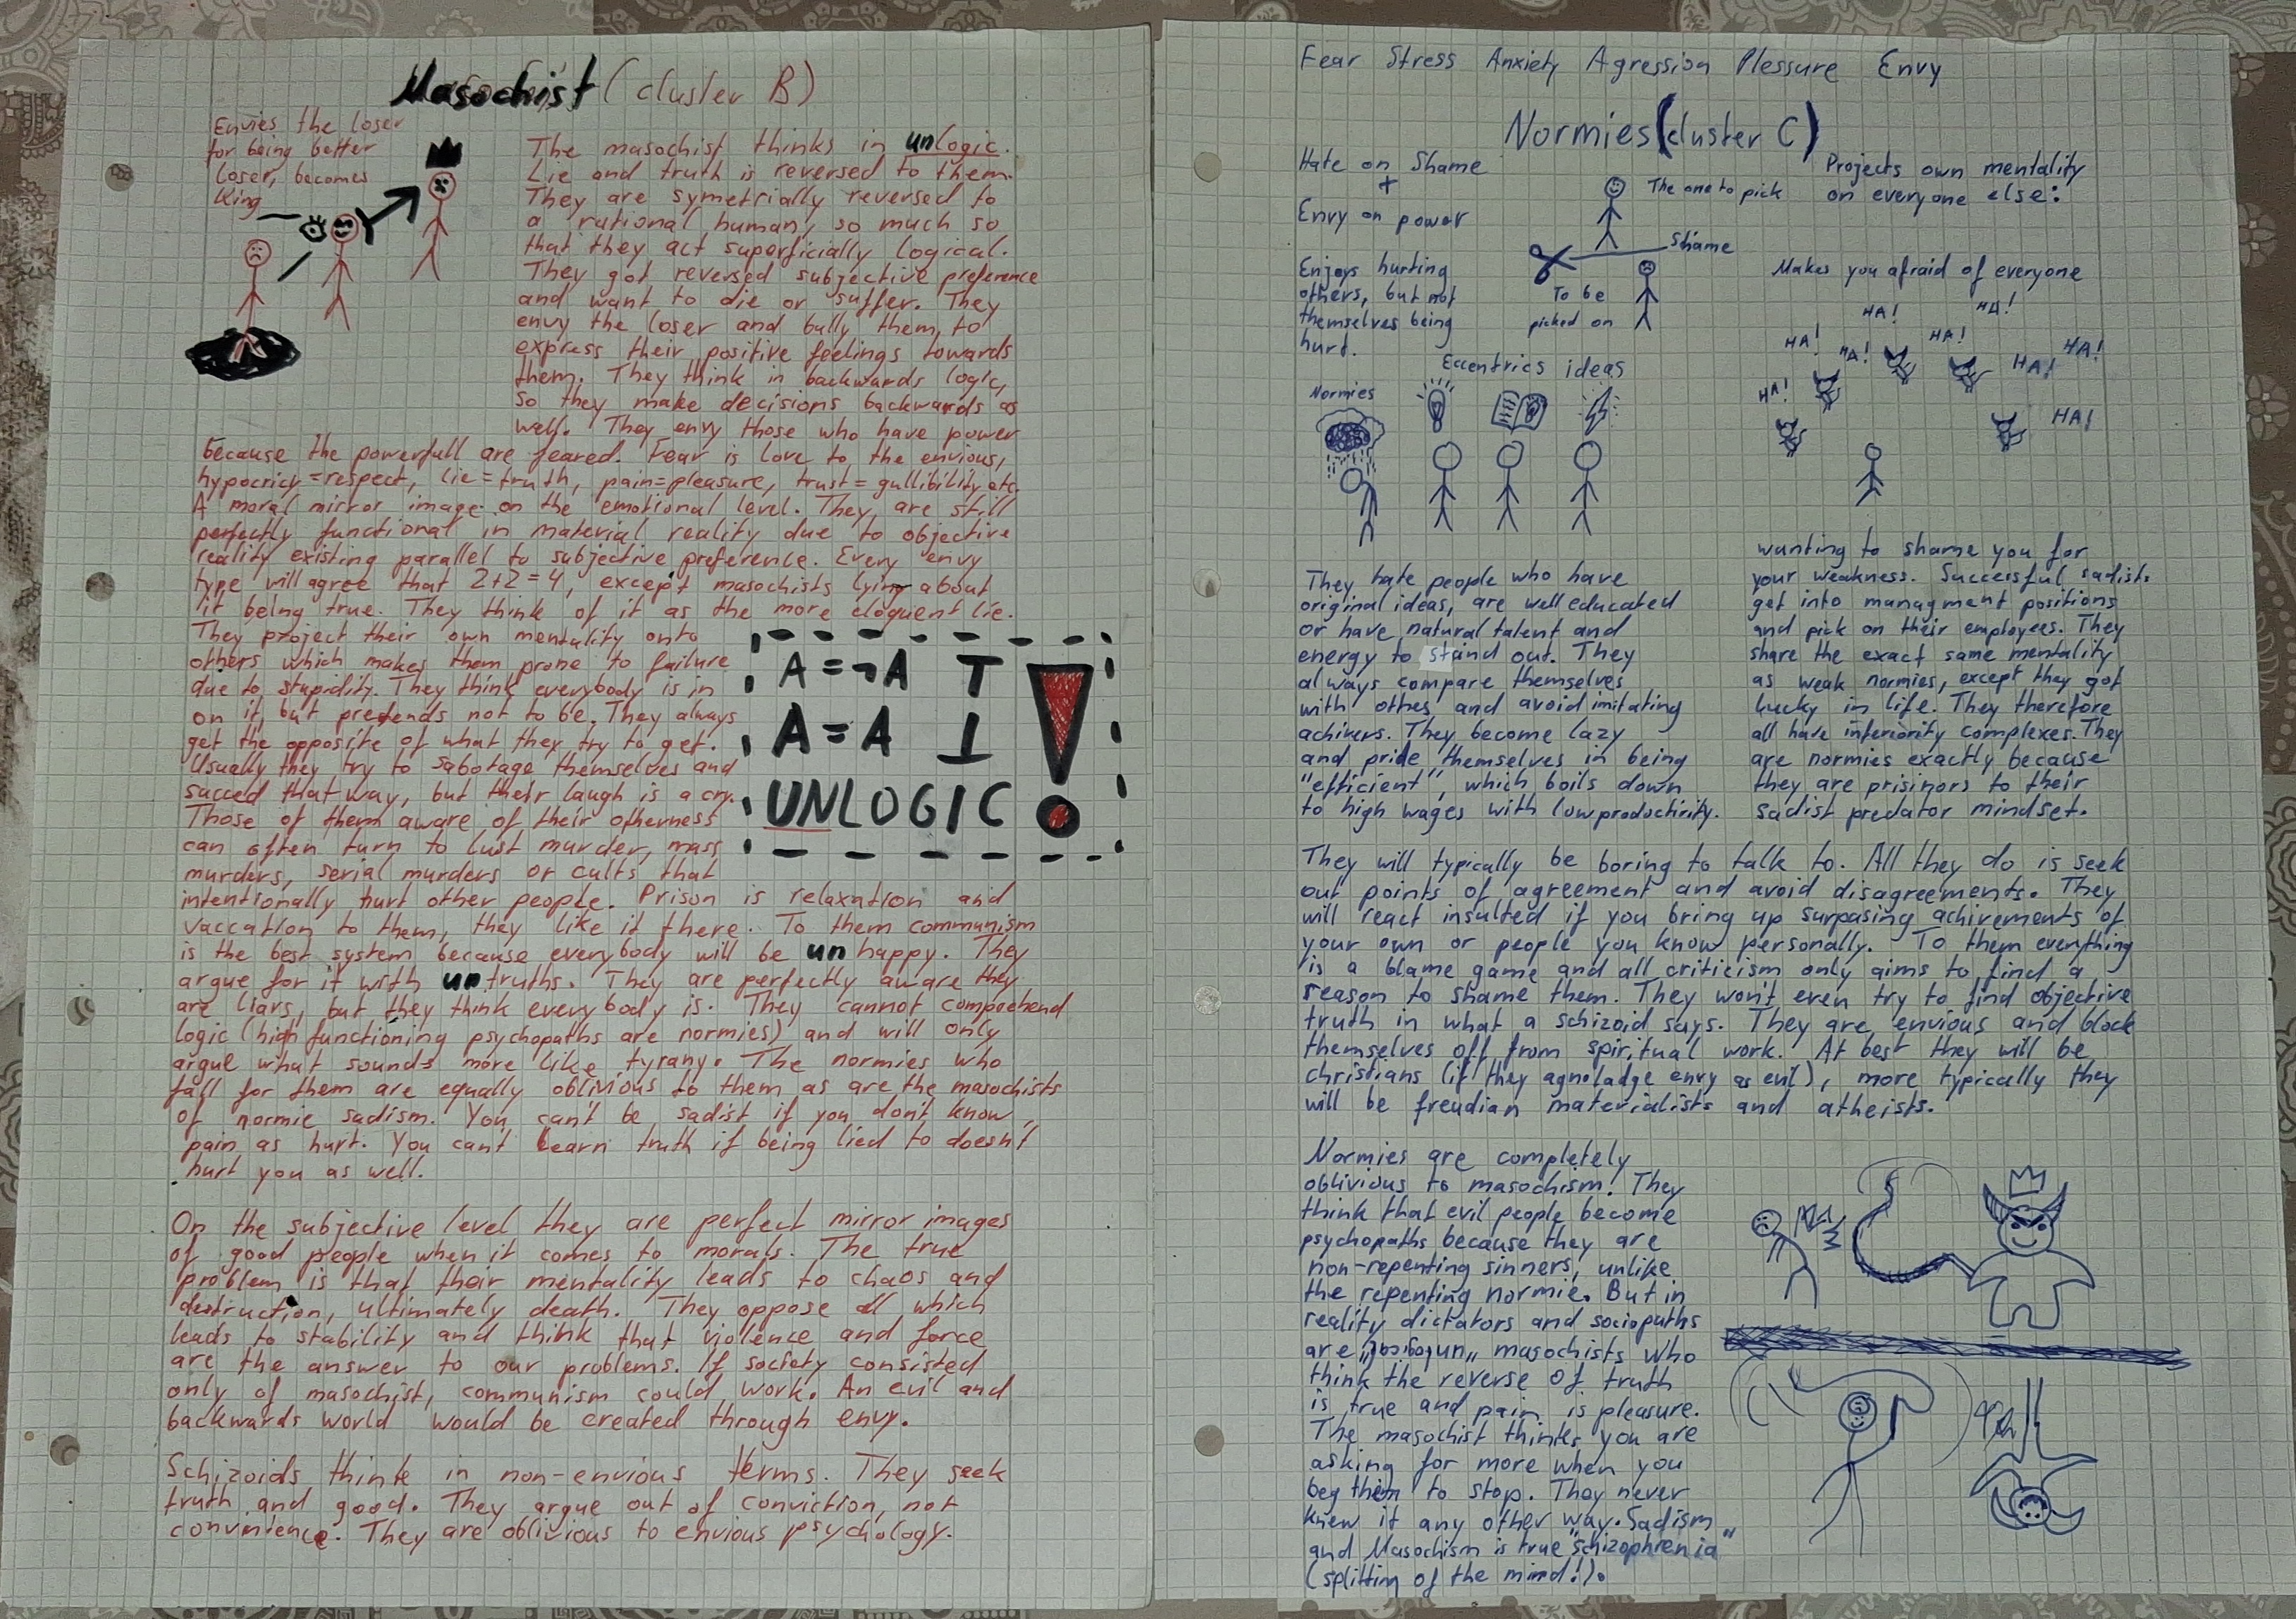 Masochist (cluster B)
Envies the loser
for being better
loser, becomes
king
The masochist thinks in unlogic.
Lie and truth is reversed to them.
They are symetrially reversed to
a rational human, so much so
that they act superficially logical.
They got reversed subjective preference
and want to die or suffer. They
envy the loser and bully them, to
express their positive feelings towards
them. They think in backwards logic,
so they make decisions backwards as
well. They envy those who have power
because the powerfull are feared. Fear is love to the envious,
hypocricy=respect, lie=truth, pain=pleasure, trust=gullibility etc.
A moral mirror image on the emotional level. They are still
perfectly functional in material reality due to objective
reality existing parallel to subjective preference. Every envy
type will agree that 2+2=4, except masochists lying about
it being true. They think of it as the more eloquent lie.
They project their own mentality onto
others which makes them prone to failure
due to stupidity. They think everybody is in
on it, but pretends not to be. They always
get the opposite of what they try to get.
Usually they try to sabotage themselves and
succed that way, but their laugh is a cry.
Those of them aware of their otherness
can often turn to lust murder, mass
murders, serial murders or cults that
A=¬A T
A=A ⊥
UNLOGIC !
intentionally hurt other people. Prison is relaxation and
vaccation to them, they like it there. To them communism
is the best system because everybody will be un happy. They
argue for it with un truths. They are perfectly aware they
are liars, but they think everybody is. They cannot comprehend
logic (high functioning psychopaths are normies) and will only
argue what sounds more like tyrany. The normies who
fall for them are equally oblivious to them as are the masochists
of normie sadism. You can't be sadist if you don't know
pain as hurt. You can't learn truth if being lied to doesn't
hurt you as well.
On the subjective level they are perfect mirror images
of good people when it comes to morals. The true
problem is that their mentality leads to chaos and
destruction, ultimately death. They oppose all which
leads to stability and think that violence and force
are the answer to our problems. If society consisted
only of masochist, communism could work. An evil and
backwards world would be created through envy.
Schizoids think in non-envious terms. They seek
truth and good. They argue out of conviction, not
convinience. They are oblivious to envious psychology.
Fear Stress Anxiety Agression Plessure Envy
Normies (cluster C)
Hate on Shame
+
Envy on power
Enjoys hurting
others, but not
themselves being
hurt.
The one to pick
Shame
To be
picked on
Projects own mentality
on everyone else:
Makes you afraid of everyone
HA!
HA!
HA!
HA!
HA!
HA!
HA!
HA!
HA!
Eccentrics ideas
Normies
They hate people who have
original ideas, are well educated
or have natural talent and
energy to stand out. They
always compare themselves
with othes and avoid imitating
achivers. They become lazy
and pride themselves in being
"efficient", which boils down
to high wages with low productivity.
wanting to shame you for
your weakness. Successful sadists
get into managment positions
and pick on their employees. They
share the exact same mentality
as weak normies, except they got
lucky in life. They therefore
all have inferiority complexes. They
are normies exactly because
they are prisinors to their
sadist predator mindset.
They will typically be boring to talk to. All they do is seek
out points of agreement and avoid disagreements. They
will react insulted if you bring up surpasing achivements of
your own or people you know personally. To them everything
is a blame game and all criticism only aims to find a
reason to shame them. They won't even try to find objective
truth in what a schizoid says. They are envious and block
themselves off from spiritual work. At best they will be
christians (if they agnoladge envy as evil), more typically they
will be freudian materialists and atheists.
Normies are completely
oblivious to masochism! They
think that evil people become
psychopaths because they are
non-repenting sinners, unlike
the repenting normie. But in
reality dictators and sociopaths
are masochists who
think the reverse of truth
is true and pain is pleasure.
The masochist thinks you are
asking for more when you
beg them to stop. They never
knew it any other way. Sadism
and Masochism is true "schizophrenia"
(splitting of the mind!).